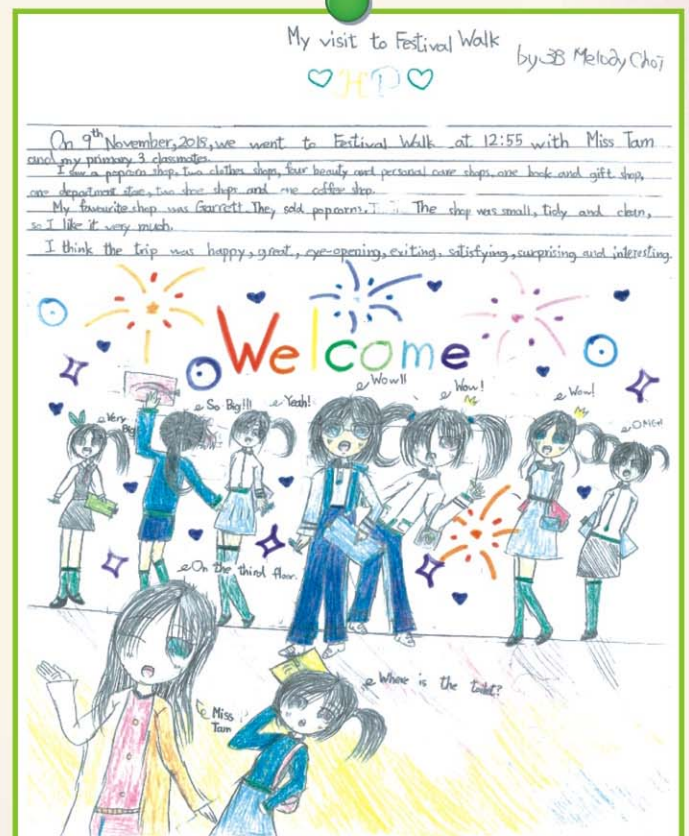 My visit to Festival Walk
by 3B Melody Choi
HP
On 9th November, 2018, we went to Festival Walk at 12:55 with Miss Tam
and my primary 3 classmates.
I saw a popcorn shop, two clothes shops, four beauty and personal care shops, one book and gift shop,
one department store, two shoe shops and one coffee shop.
My favourite shop was Garrett. They sold popcorns. The shop was small, tidy and clean,
so I like it very much.
I think the trip was happy, great, eye-opening, exiting, satisfying, surprising and interesting.
Welcome
Very Big
So Big!!!
Yeah!
Wow!!
Wow!
Wow!
OMG!
On the third floor.
Where is the toilet?
Miss
Tam